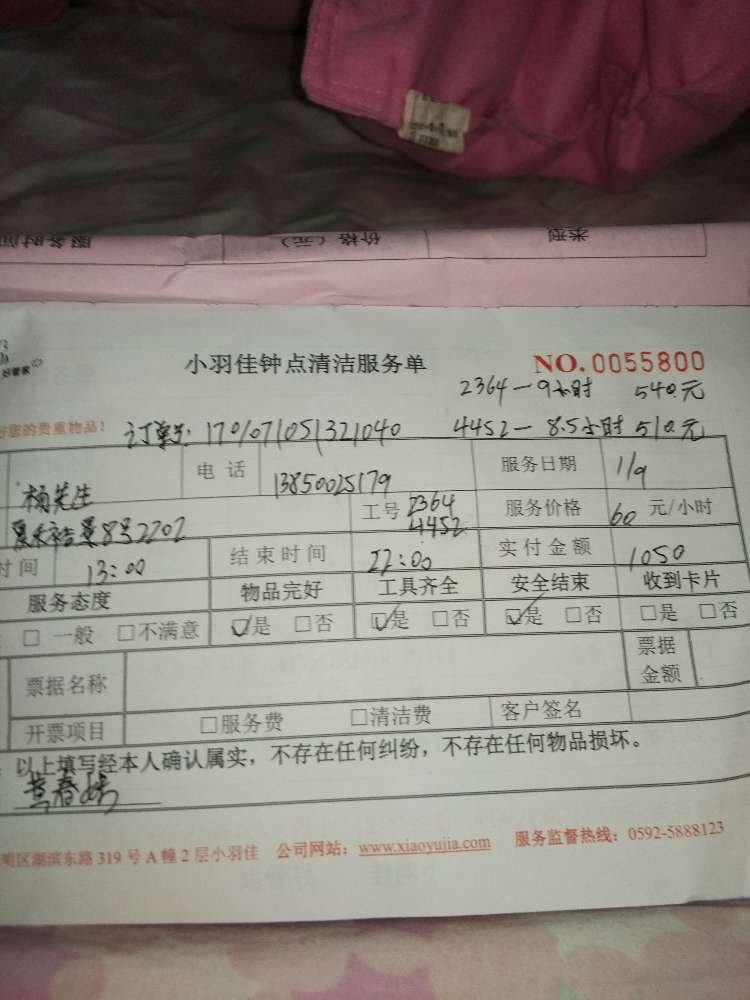 服务时间 价格（元） 类型
好管家
小羽佳钟点清洁服务单 NO. 0055800
2364—9小时 540元
您的贵重物品！ 订单号: 1701071051321040 4452—8.5小时 510元
杨先生 电话 13850025179 服务日期 1/9
8号2202 工号 2364 4452 服务价格 60 元/小时
时间 13:00 结束时间 22:00 实付金额 1050
服务态度 物品完好 工具齐全 安全结束 收到卡片
□ 一般 □不满意 ☑是 □否 ☑是 □否 ☑是 □否 □是 □否
票据名称 票据金额
开票项目 □服务费 □清洁费 客户签名
以上填写经本人确认属实，不存在任何纠纷，不存在任何物品损坏。
明区湖滨东路 319 号 A 幢 2 层小羽佳 公司网站：www.xiaoyujia.com 服务监督热线：0592-5888123